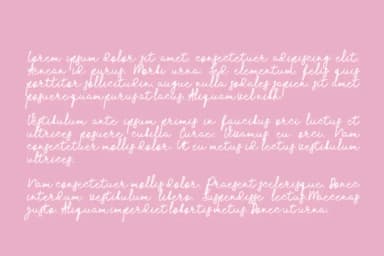 Lorem ipsum dolor sit amet, consectetuer adipiscing elit.
Aenean id purus. Morbi urna. Sed elementum, felis quis
porttitor sollicitudin, augue nulla sodales sapien, sit amet
posuere quam purus at lacus. Aliquam vel nibh.
Vestibulum ante ipsum primis in faucibus orci luctus et
ultrices posuere cubilia Curae; Vivamus eu orci. Nam
consectetuer mollis dolor. Ut eu metus id lectus vestibulum
ultrices.
Nam consectetuer mollis dolor. Praesent scelerisque. Donec
interdum vestibulum libero. Suspendisse lectus. Maecenas
justo. Aliquam imperdiet lobortis metus. Donec ut urna.